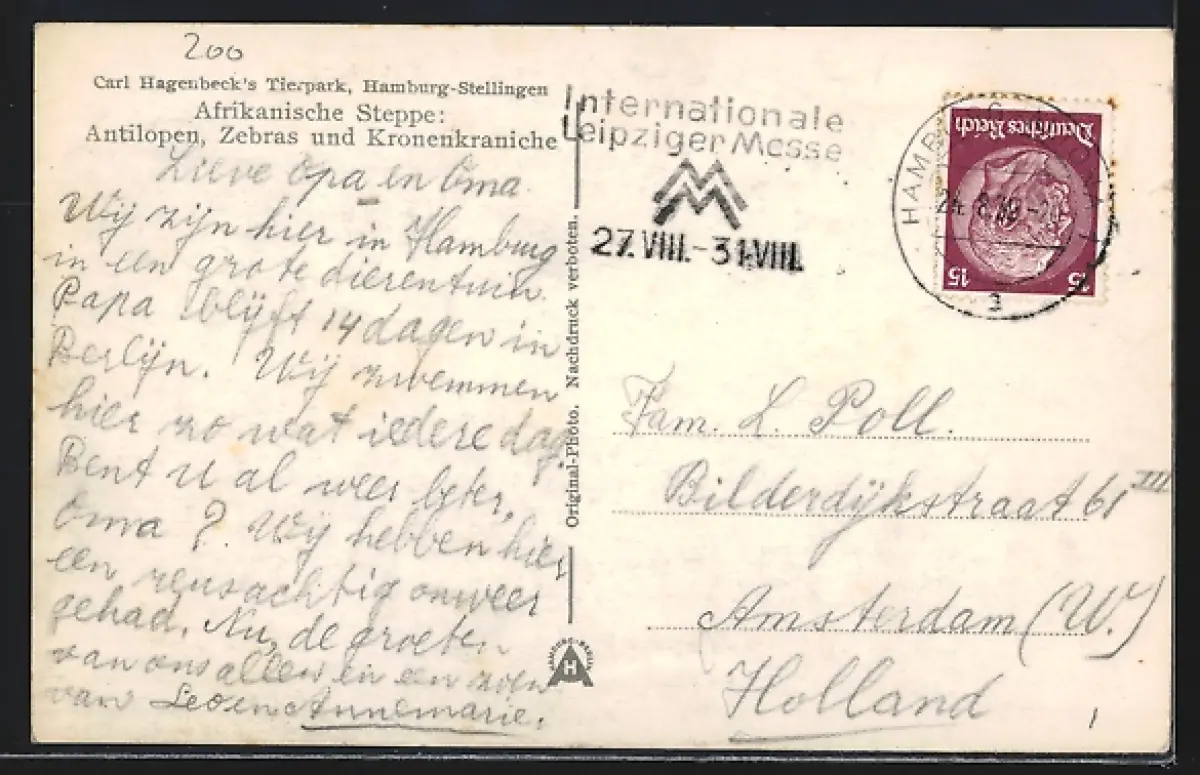 200
Carl Hagenbeck's Tierpark, Hamburg-Stellingen
Afrikanische Steppe:
Antilopen, Zebras und Kronenkraniche
Lieve Opa en Oma
Wij zijn hier in Hamburg
in een grote dierentuin.
Papa blijft 14 dagen in
Berlijn. Wij zwemmen
hier zo wat iedere dag.
Bent u al weer beter,
Oma? Wij hebben hier
een reusachtig onweer
gehad. Nu, de groeten
van ons allen en een zoen
van Leo en Annemarie.
Original-Photo. Nachdruck verboten.
H
Internationale
Leipziger Messe
MM
27.VIII.-31.VIII.
HAMB
24. 8.
a
Deutsches Reich
15 15
Fam. L. Poll.
Bilderdijkstraat 61 III
Amsterdam (W.)
Holland